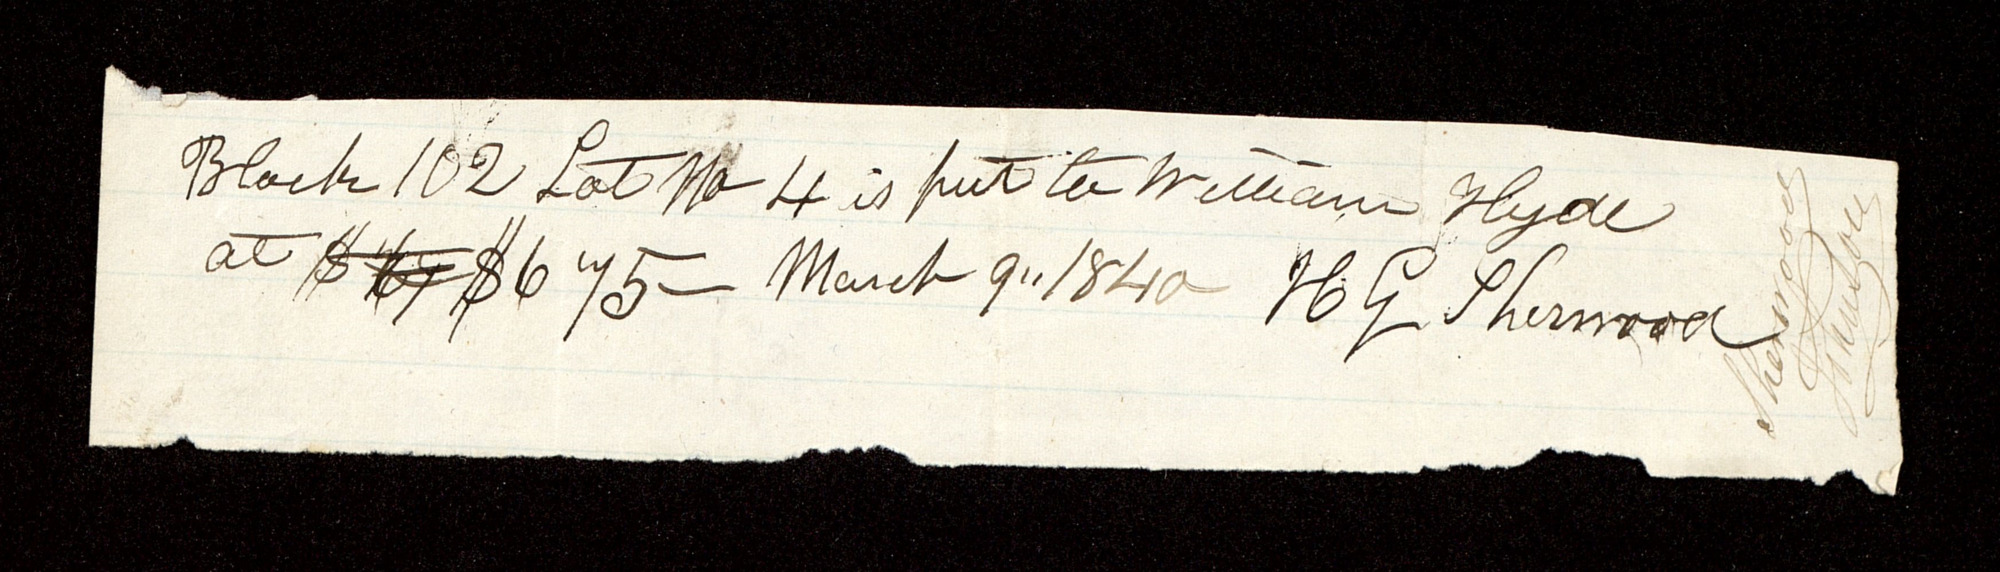 Block 102 Lot No 4 is put to William Hyde
at $ $675— March 9" 1840 H G Sherwood
Sherwood